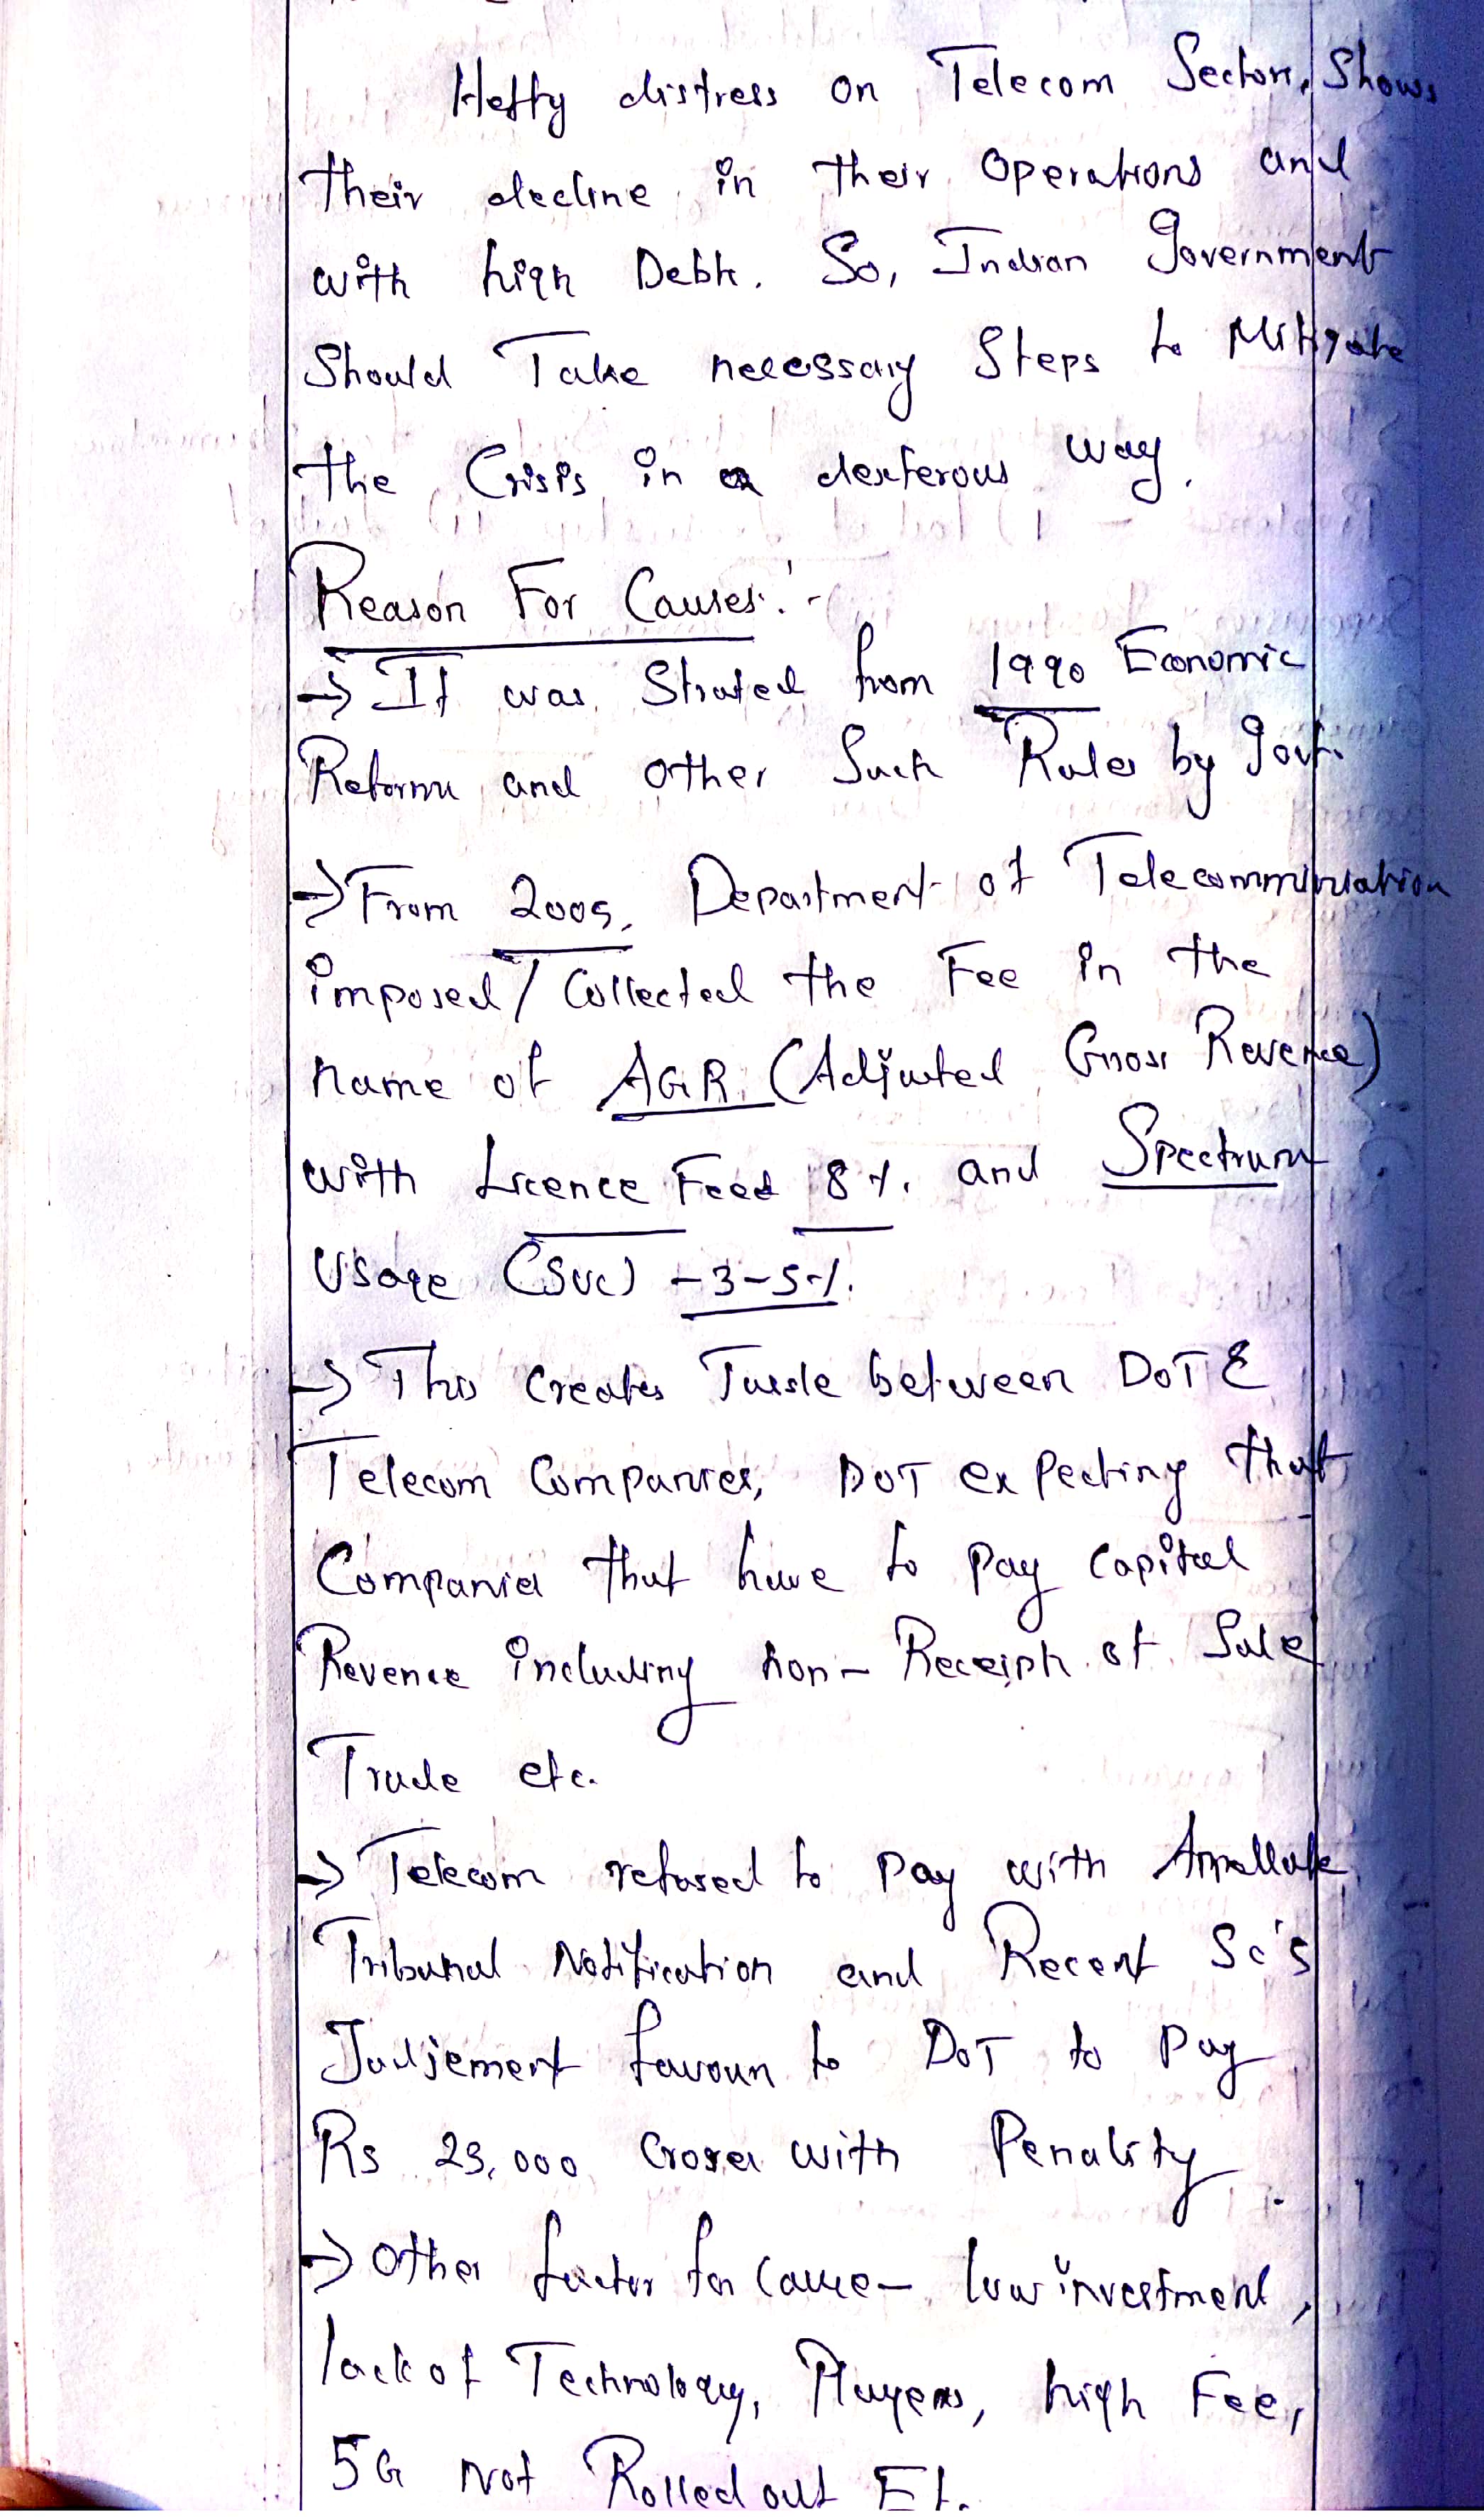 Hefty distress on Telecom Sector, Shows
their decline in their Operations and
with high Debt. So, Indian Government
Should Take necessary Steps to Mitigate
the Crisis in a dexterous way.
Reason For Causes:-
→ It was Strated from 1990 Economic
Reforms and other Such Rules by Govt.
→ From 2005, Department of Telecommunication
imposed / Collected the Fee in the
name of AGR (Adjusted Gross Revenue)
with Licence Feed 8%. and Spectrum
Usage (SUC) - 3-5%.
→ This Creates Tussle between DoT &
Telecom Companies, DOT expecting that
Companies that have to pay Capital
Revenue including non-Receipt of Sale
Trade etc.
→ Telecom refused to pay with Appellate
Tribunal Notification and Recent Sc's
Judjement favour to DoT to Pay
Rs 23,000 Crores with Penality.
→ Other factor for cause - low investment,
lack of Technology, Players, high Fee,
5G Not Rolled out Et.